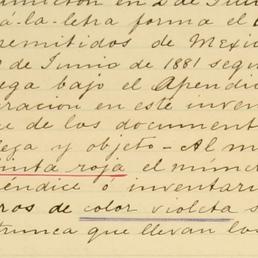 en 2 de Juni
á-la-letra forma el
remitidos de Mexic
de Junio de 1881 segu
ega bajo el Apendic
racion en este inven
ue de los document
lega y objeto - Al m
inta roja el núm
éndice ó inventari
ros de color violeta s
trunca que llevan lo